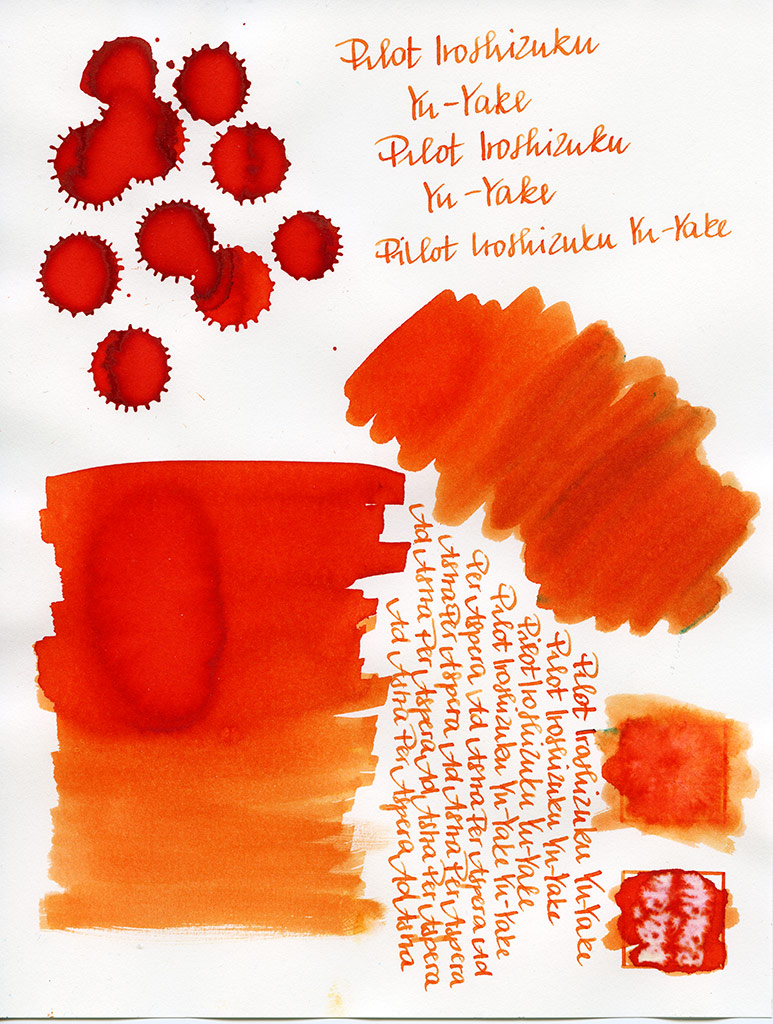 Pilot Iroshizuku
Yu-Yake
Pilot Iroshizuku
Yu-Yake
Pillot Iroshizuku Yu-Yake
Pilot Iroshizuku Yu-Yake
Pilot Iroshizuku Yu-Yake
Pilot Iroshizuku Yu-Yake
Pilot Iroshizuku Yu-Yake Yu-Yake
Per Aspera Ad Astra Per Aspera Ad
Astra Per Aspera Ad Astra Per Aspera
Ad Astra Per Aspera Ad Astra Per Aspera
Ad Astra Per Aspera Ad Astra